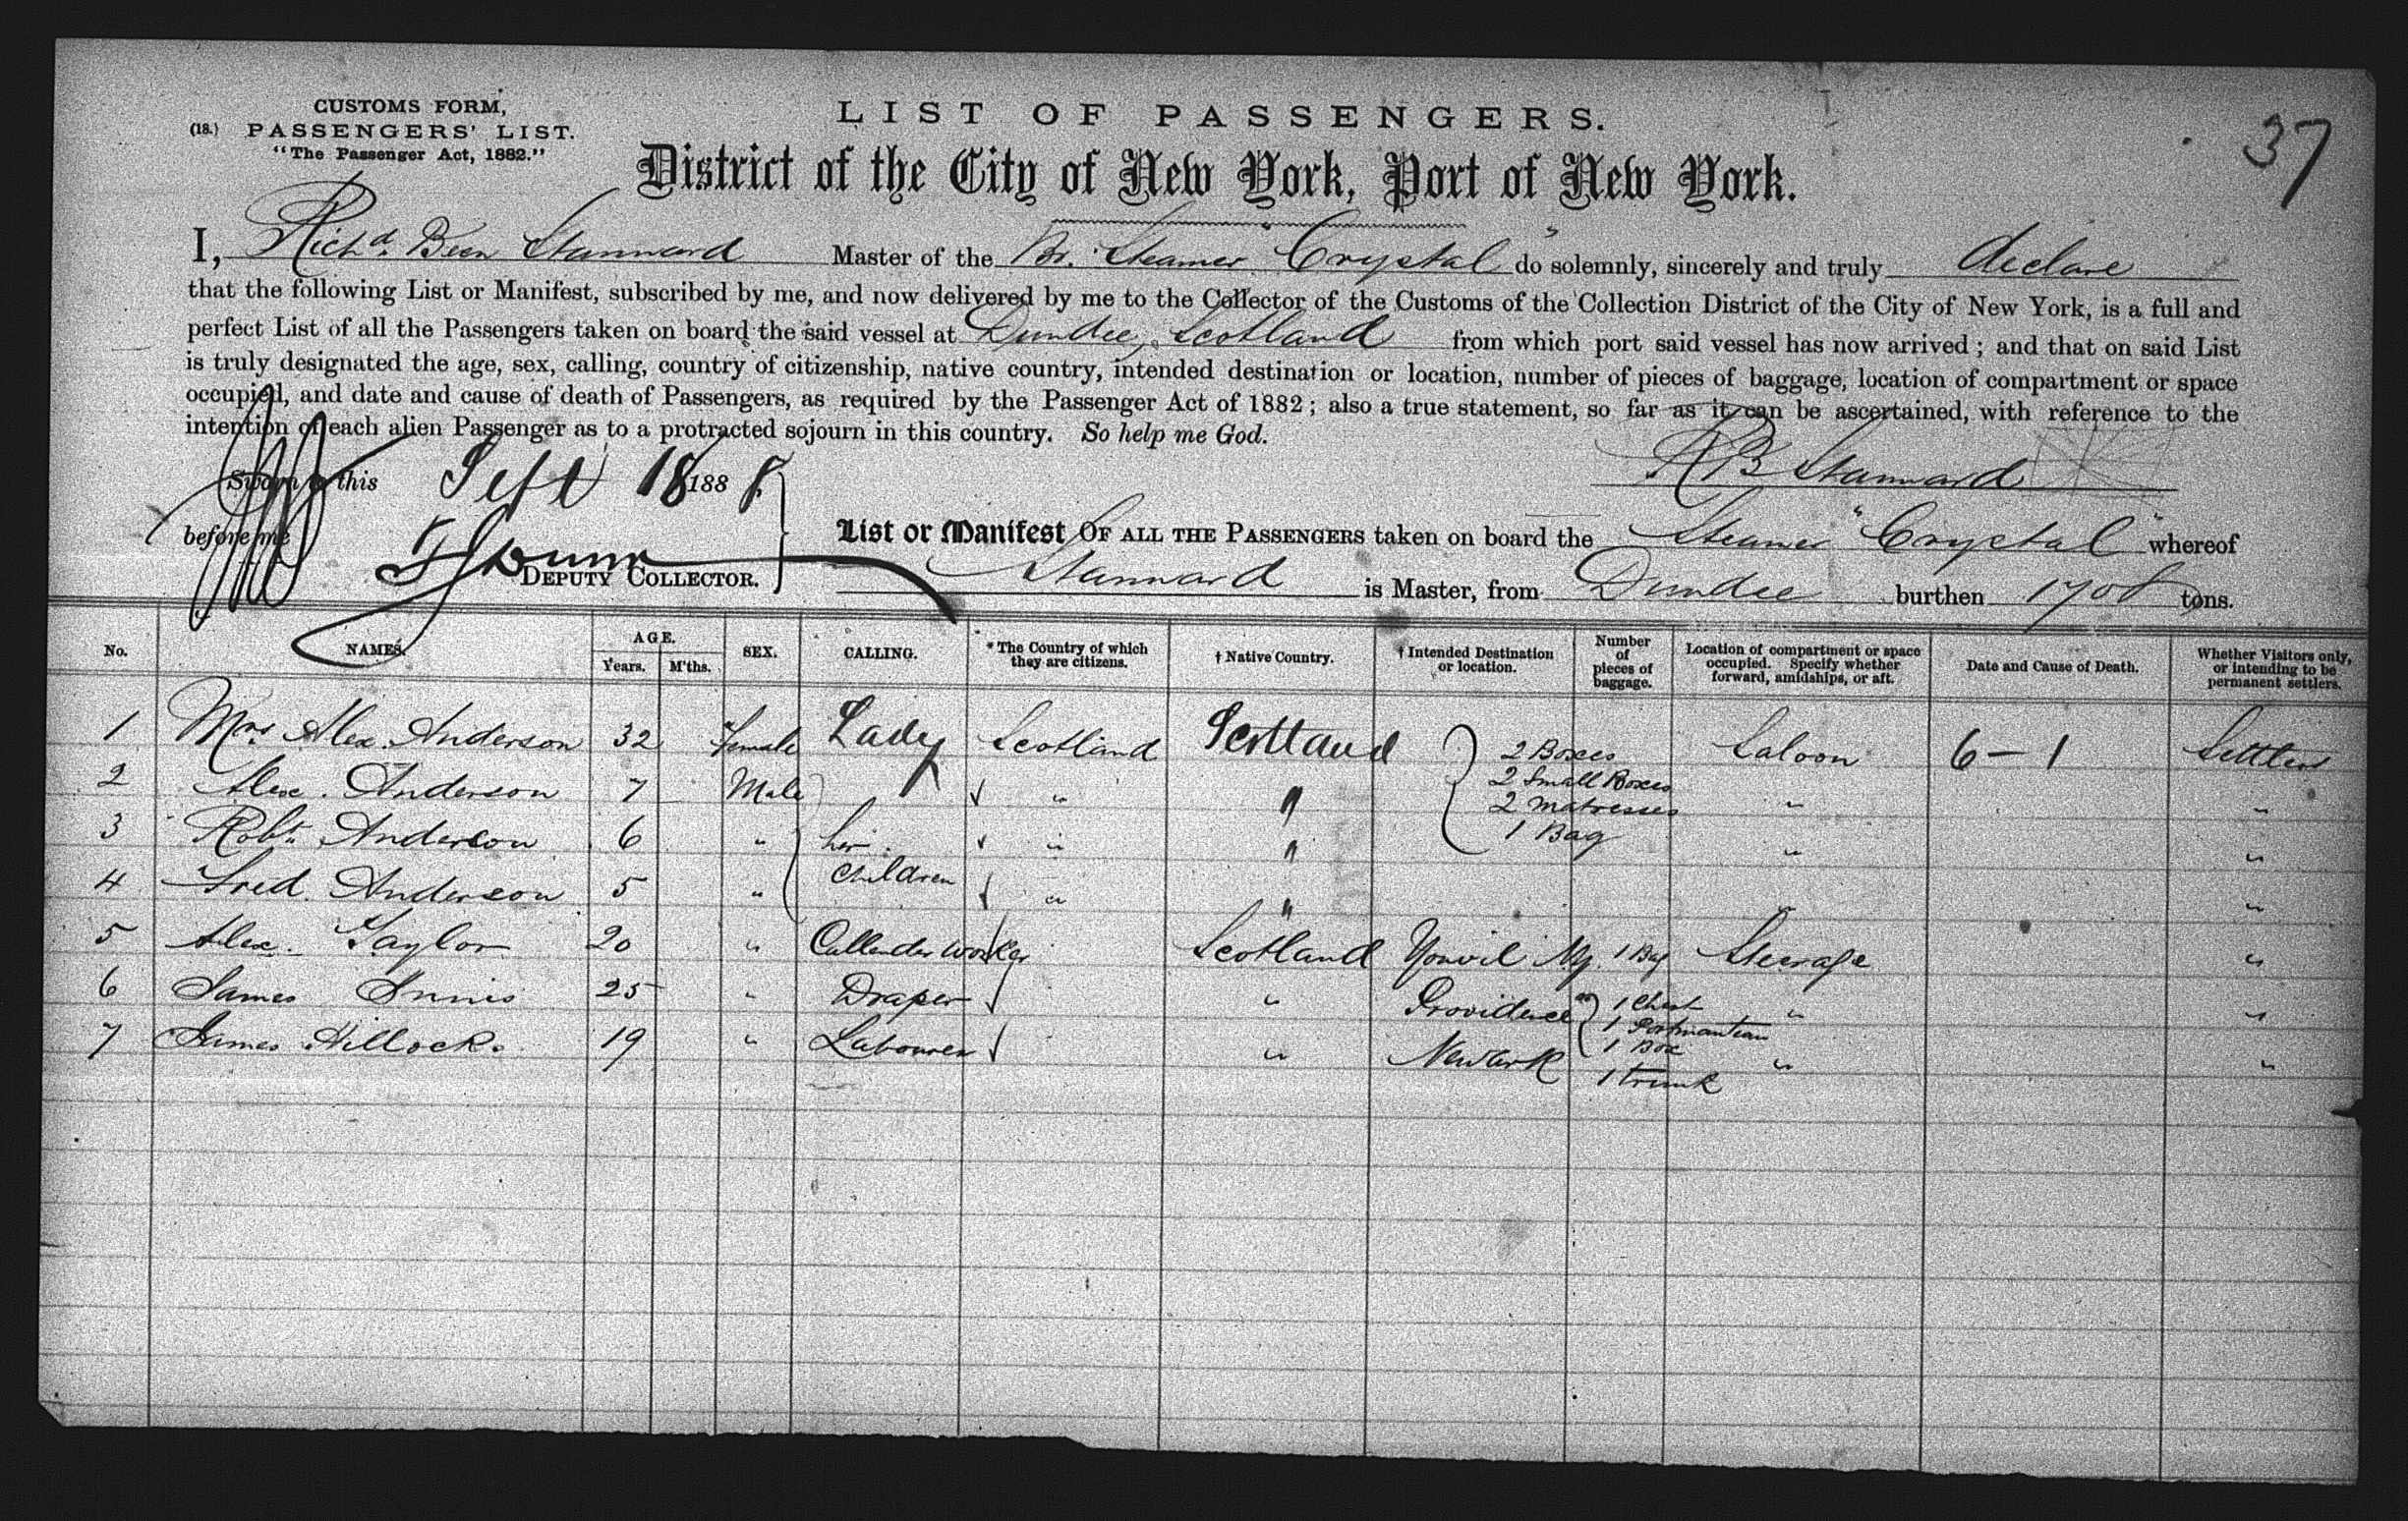 CUSTOMS FORM,
(18.) PASSENGERS' LIST.
"The Passenger Act, 1882."
LIST OF PASSENGERS.
37
District of the City of New York, Port of New York.
I, Richd. Been Stannard Master of the Br. Steamer "Crystal" do solemnly, sincerely and truly declare
that the following List or Manifest, subscribed by me, and now delivered by me to the Collector of the Customs of the Collection District of the City of New York, is a full and
perfect List of all the Passengers taken on board the said vessel at Dundee, Scotland from which port said vessel has now arrived; and that on said List
is truly designated the age, sex, calling, country of citizenship, native country, intended destination or location, number of pieces of baggage, location of compartment or space
occupied, and date and cause of death of Passengers, as required by the Passenger Act of 1882; also a true statement, so far as it can be ascertained, with reference to the
intention of each alien Passenger as to a protracted sojourn in this country. So help me God.
R B Stannard
Sworn to this Sept 18 1888
before me
DEPUTY COLLECTOR.
List or Manifest OF ALL THE PASSENGERS taken on board the Steamer "Crystal" whereof
Stannard is Master, from Dundee burthen 1708 tons.
No. NAMES. AGE. Years. M'ths. SEX. CALLING. * The Country of which they are citizens. † Native Country. † Intended Destination or location. Number of pieces of baggage. Location of compartment or space occupied. Specify whether forward, amidships, or aft. Date and Cause of Death. Whether Visitors only, or intending to be permanent settlers.
1 Mrs Alex. Anderson 32 Female Lady Scotland Scotland 2 Boxes Saloon 6 - 1 Settlers
2 Alex. Anderson 7 Male " " 2 Small Boxes 2 Matresses " "
3 Robt. Anderson 6 " her " " 1 Bag " "
4 Fred. Anderson 5 " Children " " " "
5 Alex. Taylor 20 " Callender worker Scotland 1 Bag Steerage "
6 James Innis 25 " Draper " Providence 1 Chest 1 Portmanteau " "
7 James Hillock. 19 " Labourer " Newark 1 Box 1 trunk " "